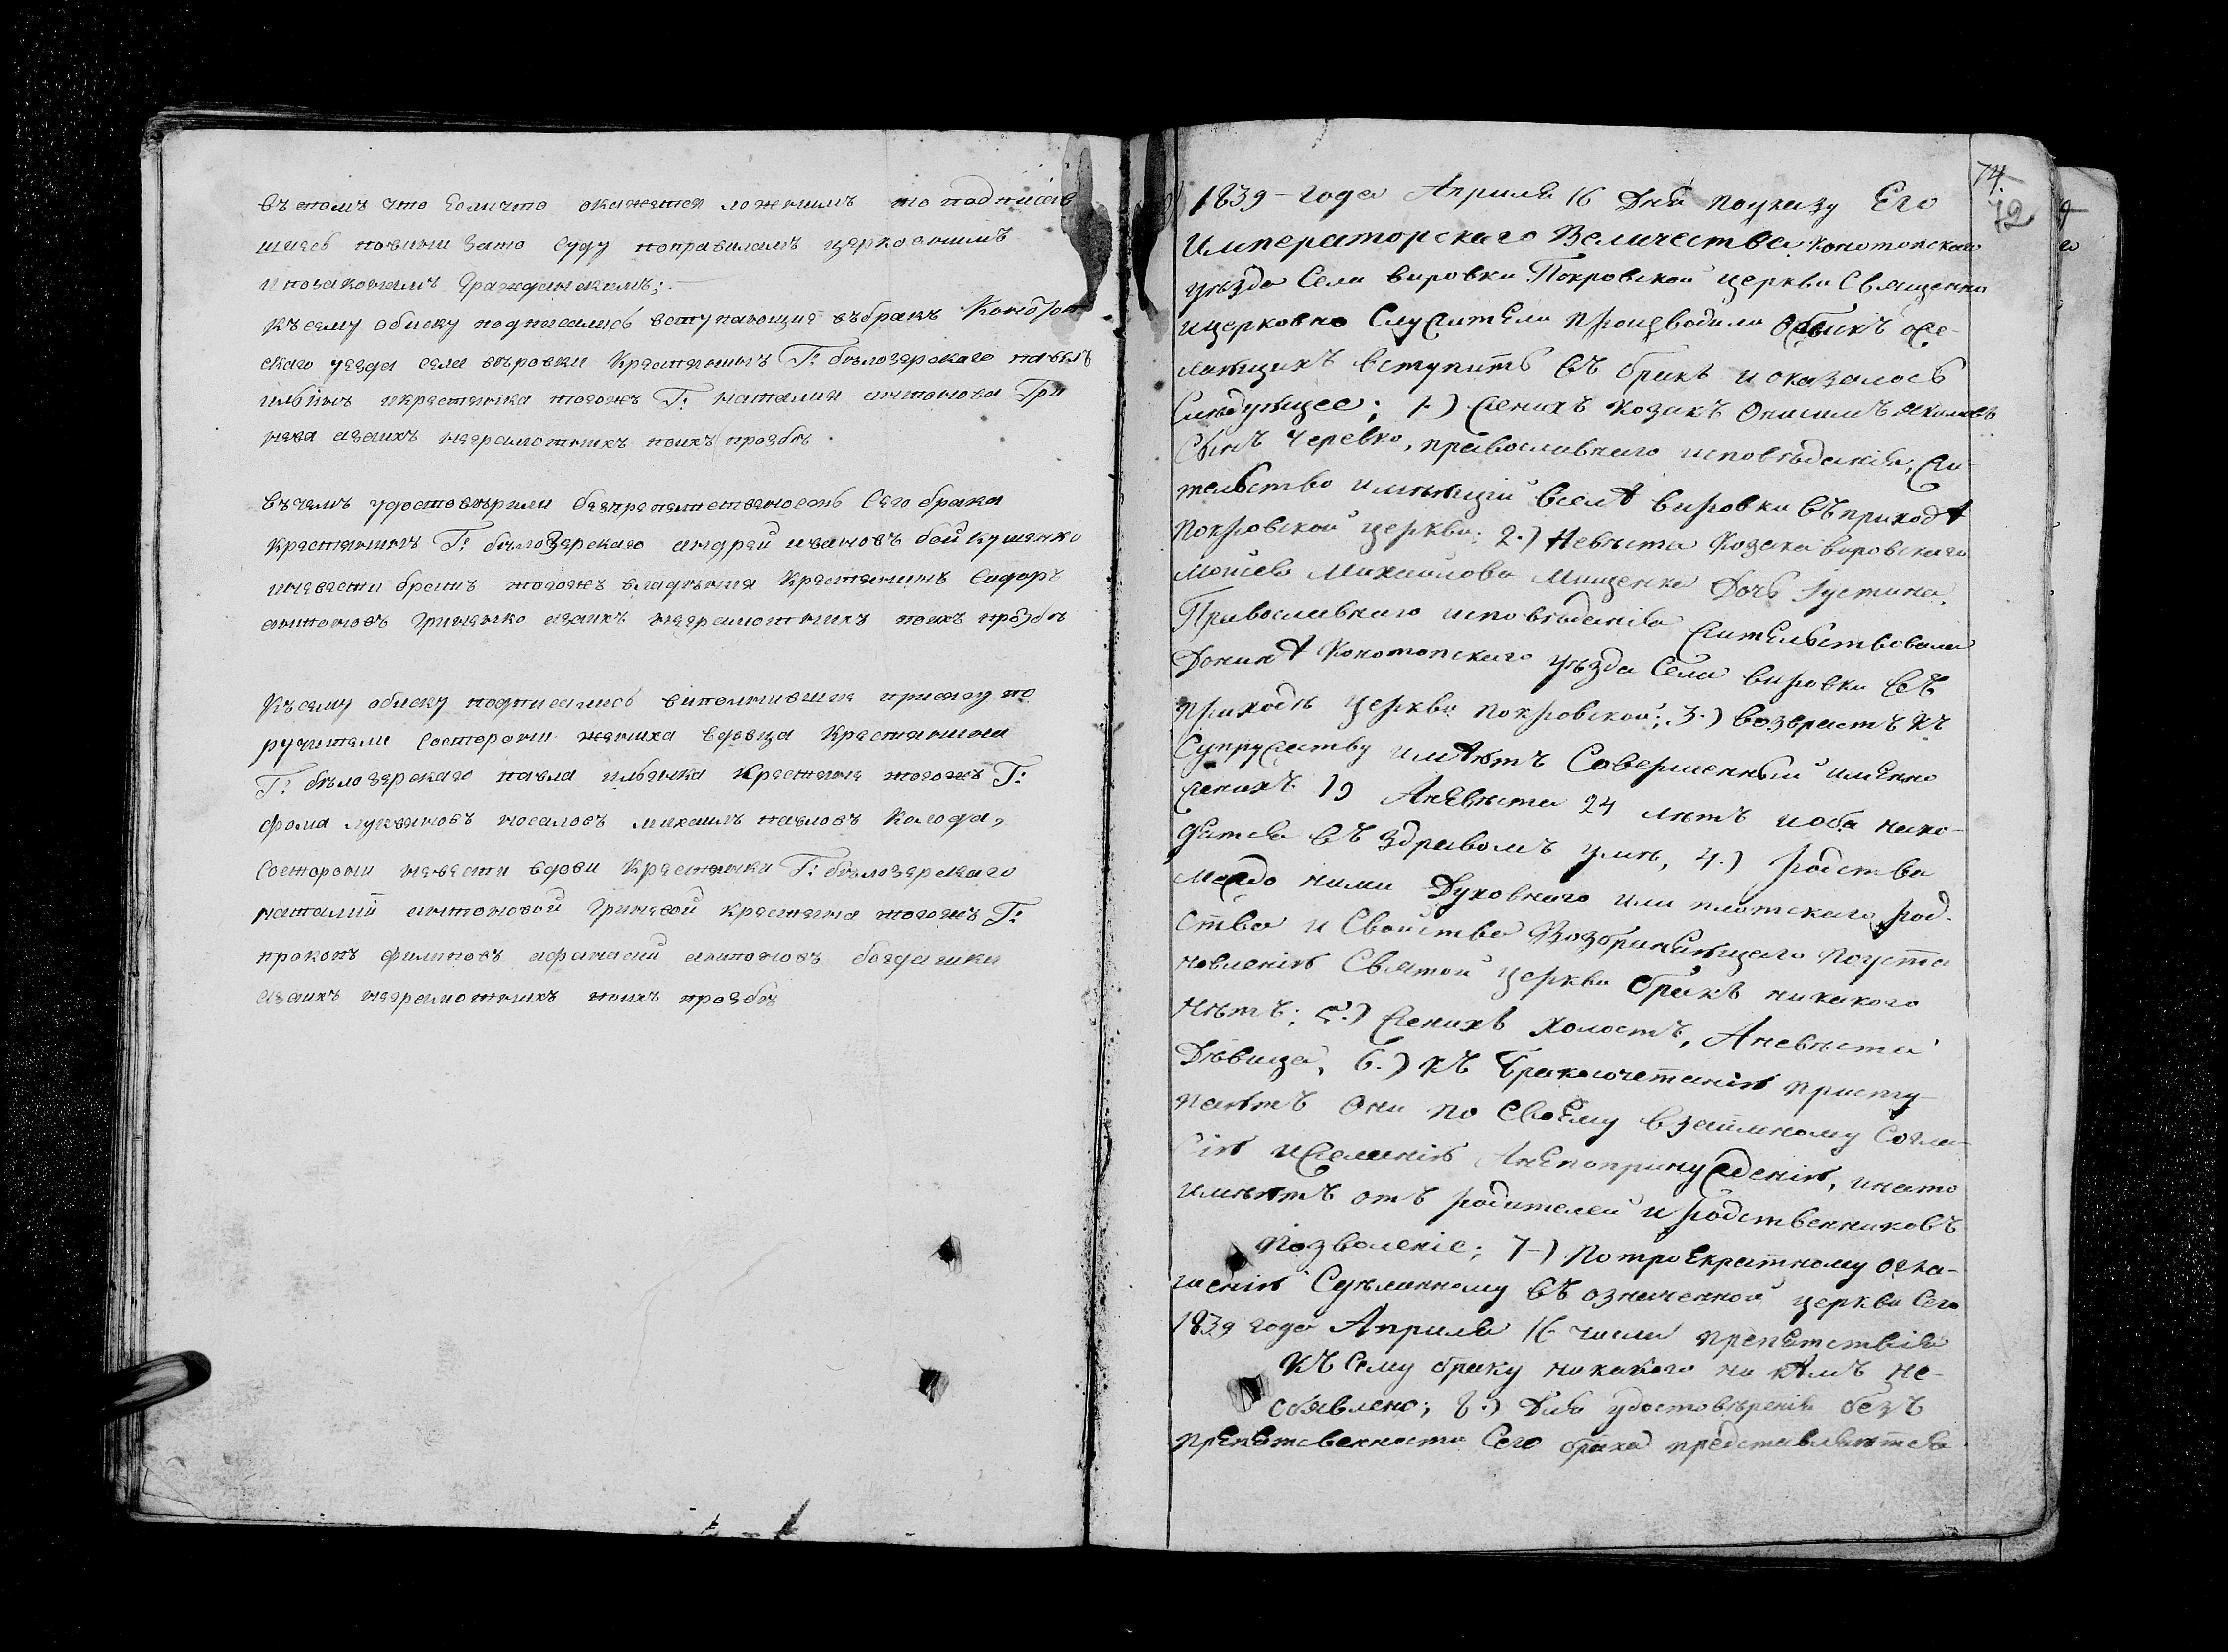 въ томъ что Если что окажется ложнымъ то подписав
шіяся повини зато суду поправиламъ церковнимъ
и позаконамъ Гражданскимъ;.
Къ сему обиску подписались вступающия въбракъ Коното
скаго уезда села въровки Крестянинъ Г: бѣлозерскаго павелъ
ильинъ икрестянка тогожъ Г: наталия антонова Гри
нева азаихъ неграмотнихъ поихъ прозбѣ.
Въ чемъ удостовѣрили безпрепятственность Сего брака
крестянинъ Г: бѣлозерскаго андрей ивановъ бойкушенко
иневести братъ тогожъ владѣния Крестянинъ Сидоръ
антоновъ Гриненко азаихъ неграмотнихъ поихъ прозбѣ
Къ сему обиску подписались виполнившия присягу по
ручители Состорони жениха вдовца Крестянина
Г: бѣлозерскаго павла ильенка Крестяня тогожъ Г:
фома лукяновъ носаловъ михаилъ павловъ Колода,
Состорони невести вдови Крестянки Г: бѣлозерскаго
наталіи антоновой Гриневой крестяня тогожъ Г:
прокопъ филиповъ иафанасий антоновъ
азаихъ неграмотнихъ поихъ прозбѣ
74.
72
1839 - года Апреля 16 Дня поуказу Его
Императорскаго Величества Конотопскаго
уѣзда Села вировки Покровской церкви Священно
ицерковно Служители производили Обыскъ оже-
лающихъ вступить въ бракъ и оказалось
Слѣдующее; 1.) Женихъ Козакъ Онисимъ Якимовъ
Сынъ Черевко, православнаго исповѣданія, жи-
тельство имѣющій вселѣ вировки въприходѣ
покровской церкви; 2.) Невѣста Козака вировскаго
Моисея Михайлова Мищенка Дочь Іустина,
Православнаго исповѣданія жительствовала
Донинѣ Конотопскаго уѣзда Села вировки въ
приходѣ церкви покровской; 3.) возврастъ къ
Супружеству имѣютъ Совершенный именно
женихъ 19 Аневѣста 24 лѣтъ иоба нахо-
дятся въ здравомъ умѣ, 4.) родства
между ними Духовнаго или плотскаго род-
ства и Свойства Возбраняющаго поуста
новленію Святой церкви бракъ никакого
нѣтъ; 5.) Женихъ Холостъ, Аневѣста
Дѣвица, 6.) къ бракосочетанію присту-
паютъ Они по Своему взаимному Согла-
сію ижеланію Анепопринужденію, инато
имѣютъ отъ родителей и родственниковъ
позволеніе; 7-) по троекратному огла-
шенію Сдѣланному въ означенной церкви Сего
1839 года Апреля 16 числа препятствія
къ Сему браку никакого ни кѣмъ не-
объявлено; 8.) Для удостовѣренія безъ
препятственности Сего брака представляются